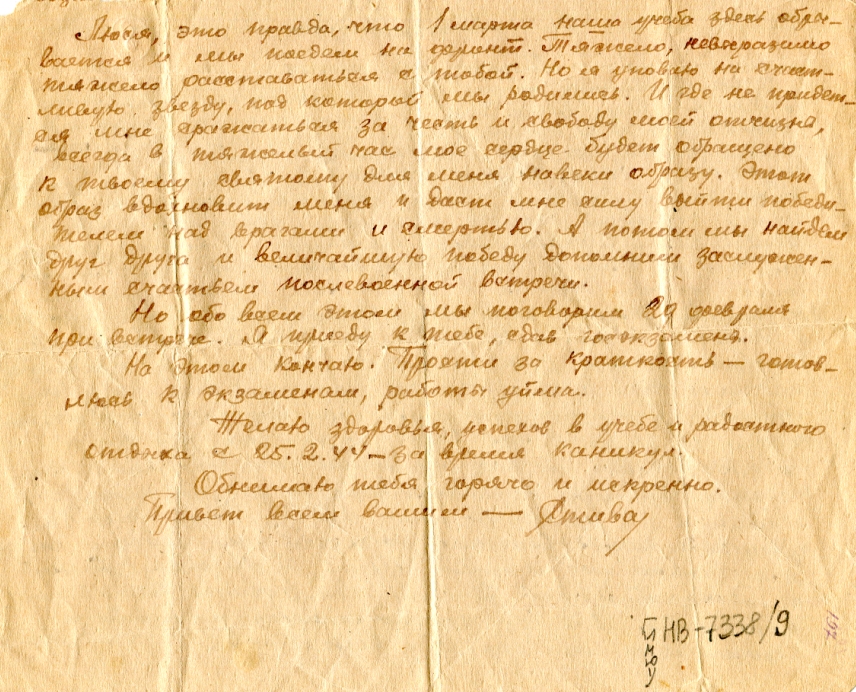 Люся, это правда, что 1 марта наша учеба здесь обры-
вается и мы поедем на фронт. Тяжело, невыразимо
тяжело расставаться с тобой. Но я уповаю на счаст-
ливую звезду, под которой мы родились. И где не придет-
ся мне сражаться за честь и свободу моей отчизны,
всегда в тяжелый час мое сердце будет обращено
к твоему святому для меня навеки образу. Этот
образ вдохновит меня и даст мне силу выйти победи-
телем над врагами и смертью. А потом мы найдем
друг друга и величайшую победу дополним заслужен-
ным счастьем послевоенной встречи.
Но обо всем этом мы поговорим 29 февраля
при встрече. Я приеду к тебе, сдав госэкзамены.
На этом кончаю. Прости за краткость — готов-
люсь к экзаменам, работы уйма.
Желаю здоровья, успехов в учебе и радостного
отдыха с 25.2.44 – за время каникул.
Обнимаю тебя горячо и искренно.
Привет всем вашим — Стива
НВ-7338/9